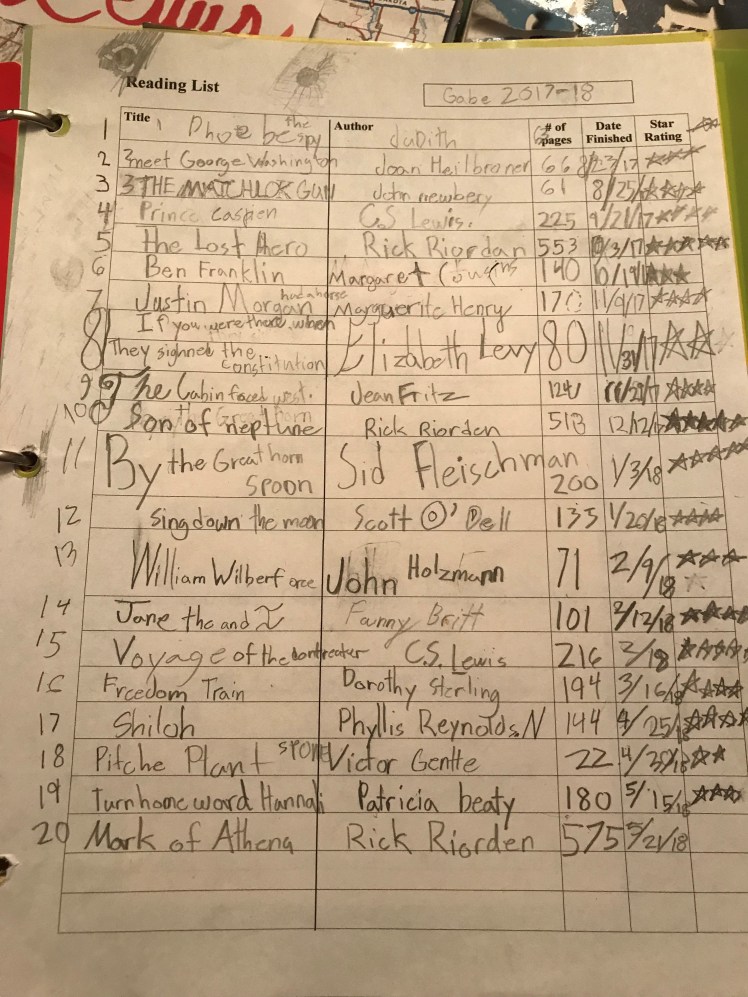 Reading List
Gabe 2017-18
Title Author # of pages Date Finished Star Rating
1 Phoebe the spy Judith
2 meet George Washington Joan Heilbroner 66 8/23/17 ☆☆☆☆
3 THE MATCHLOK GUN John newbery 61 8/25/ ☆☆☆☆
4 Prince Caspien C.S Lewis. 225 9/21/17 ☆☆☆☆
5 the Lost Hero Rick Riordan 553 /3/17 ☆☆☆☆☆
6 Ben Franklin Margaret 140 10/19/ ☆☆☆
7 Justin Morgan had a horse Marguerite Henry 170 11/9/17 ☆☆☆☆
8 If you were there when
They sighned the constitution Elizabeth Levy 80 ☆☆☆
9 The Cabin faced west. Jean Fritz 124 /17 ☆☆☆☆
10 Son of neptune Rick Riordan 513 12/12/ ☆☆☆☆☆
11 By the Great horn
spoon Sid Fleischman 200 1/3/18 ☆☆☆☆☆
12 sing down the moon Scott O'Dell 135 1/20/18 ☆☆☆☆
13 William Wilberforce John Holzmann 71 2/9/18 ☆☆☆☆
14 Jane the and Fanny Britt 101 2/12/18 ☆☆☆☆
15 Voyage of the C.S. Lewis 216 /18 ☆☆☆☆
16 Freedom Train Dorothy Sterling 194 3/16/18 ☆☆☆☆
17 Shiloh Phyllis Reynolds.N 144 4/25/18 ☆☆☆☆
18 Pitche Plant Victor Gentle 22 4/30/18 ☆☆
19 Turn home word Hannali Patricia beaty 180 5/15/18 ☆☆☆
20 Mark of Athena Rick Riorden 575 5/21/18